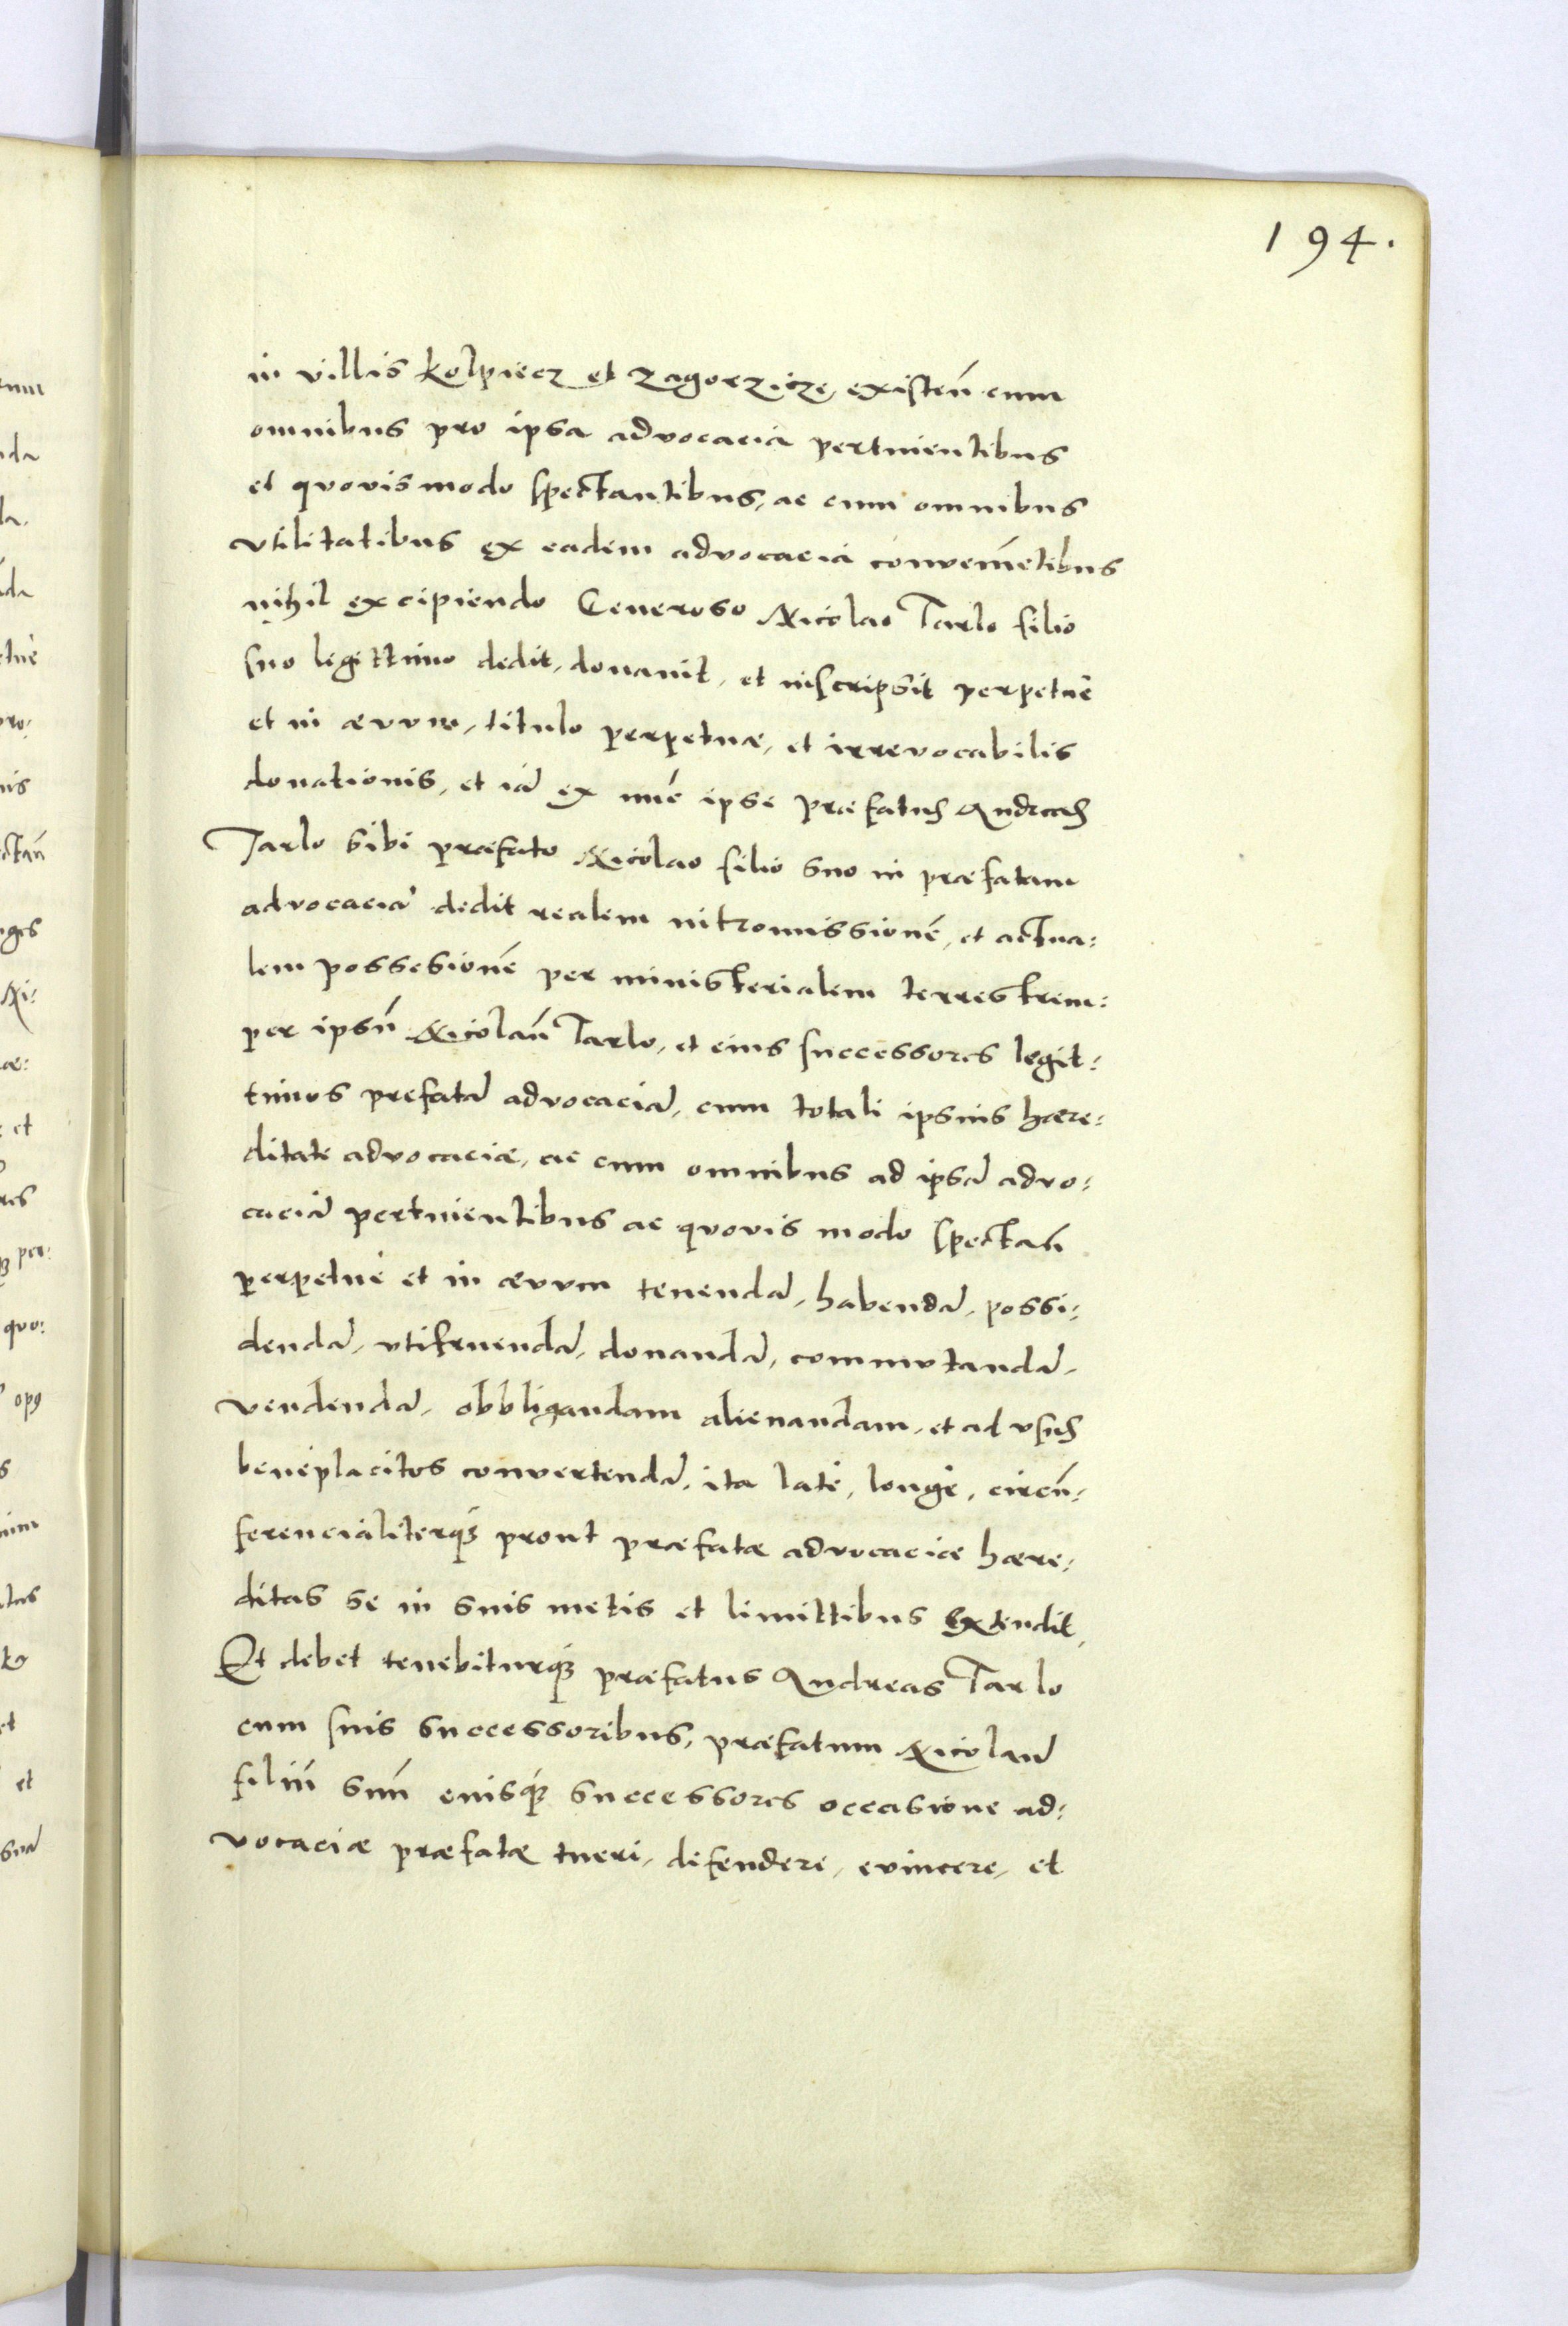 194.
in villis Kolpiecz et Zagorzicze, existen̄ cum
omnibus pro ipsa advocaciā pertinientibus
et quovismodo spectantibus, ac cum omnibus
vtilitatibus ex eadem advocaciā conveniētibus
nihil excipiendo Generoso Nicolao Tarlo filio
suo legittimo dedit, donavit, et inscripsit perpetuè
et in ævum, titulo perpetuæ, et irrevocabilis
donationis, et iā ex nūc ipse præfatus Andreas
Tarlo sibi præfato Nicolao filio suo in præfatam
advocaciā dedit realem intromissionē, et actua:
lem possesionē per ministerialem terrestrem:
per ipsū Nicolaū Tarlo, et eius successores legit:
timos prefatā advocaciā, cum totali ipsius hære:
ditate advocaciæ, ac cum omnibus ad ipsā advo:
caciā pertinientibus ac quovis modo spectan̄
perpetuè et in ævum tenendā, habendā, possi:
dendā, vtifruendā, donandā, commutandā,
vendendā, obbligandam alienandam, et ad vsus
beneplacitos convertendā, ita latè, longè, circū:
ferencialiterq́ȝ prout præfatæ advocaciæ hære:
ditas se in suis metis et limittibus extendit,
Et debet tenebiturq́ȝ præfatus Andreas Tarlo
cum suis successoribus, præfatum Nicolaū
filiū suū euisq́ȝ successores occasione ad:
vocaciæ præfatæ tueri, defendere, evincere, et